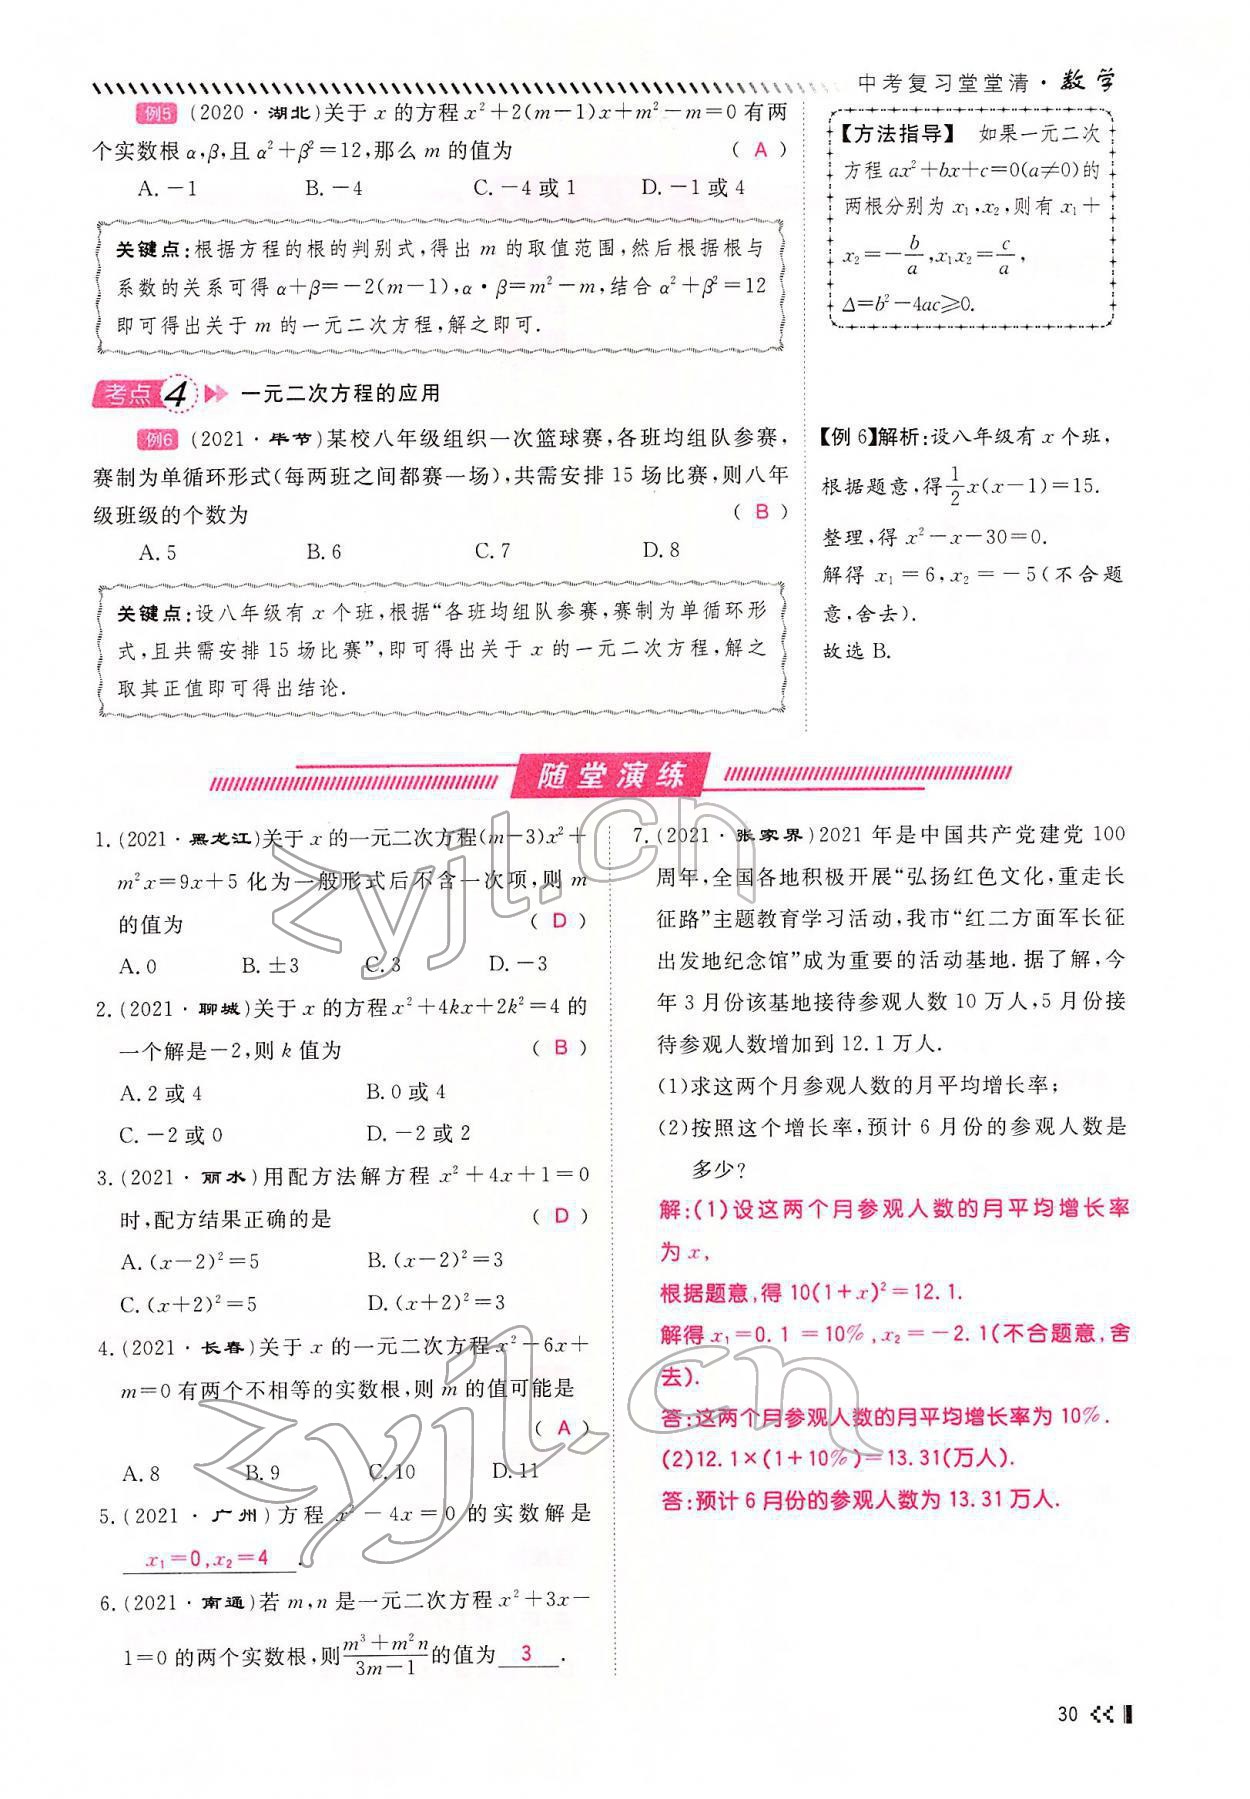 中考复习堂堂清·数学
例5 (2020·湖北)关于 x 的方程 x²+2(m-1)x+m²-m=0 有两
个实数根 α,β,且 α²+β²=12,那么 m 的值为 ( A )
A. -1 B. -4 C. -4 或 1 D. -1 或 4
关键点:根据方程的根的判别式,得出 m 的取值范围,然后根据根与
系数的关系可得 α+β=-2(m-1),α·β=m²-m,结合 α²+β²=12
即可得出关于 m 的一元二次方程,解之即可.
【方法指导】 如果一元二次
方程 ax²+bx+c=0(a≠0)的
两根分别为 x₁,x₂,则有 x₁+
x₂=-b/a,x₁x₂=c/a,
Δ=b²-4ac≥0.
考点4 一元二次方程的应用
例6 (2021·毕节)某校八年级组织一次篮球赛,各班均组队参赛,
赛制为单循环形式(每两班之间都赛一场),共需安排 15 场比赛,则八年
级班级的个数为 ( B )
A. 5 B. 6 C. 7 D. 8
关键点:设八年级有 x 个班,根据“各班均组队参赛,赛制为单循环形
式,且共需安排 15 场比赛”,即可得出关于 x 的一元二次方程,解之
取其正值即可得出结论.
【例 6】解析:设八年级有 x 个班,
根据题意,得1/2x(x-1)=15.
整理,得 x²-x-30=0.
解得 x₁=6,x₂=-5(不合题
意,舍去).
故选 B.
随堂演练
1. (2021·黑龙江)关于 x 的一元二次方程(m-3)x²+
m²x=9x+5 化为一般形式后不含一次项,则 m
的值为 ( D )
A. 0 B. ±3 C. 3 D. -3
2. (2021·聊城)关于 x 的方程 x²+4kx+2k²=4 的
一个解是-2,则 k 值为 ( B )
A. 2 或 4 B. 0 或 4
C. -2 或 0 D. -2 或 2
3. (2021·丽水)用配方法解方程 x²+4x+1=0
时,配方结果正确的是 ( D )
A. (x-2)²=5 B. (x-2)²=3
C. (x+2)²=5 D. (x+2)²=3
4. (2021·长春)关于 x 的一元二次方程 x²-6x+
m=0 有两个不相等的实数根,则 m 的值可能是
( A )
A. 8 B. 9 C. 10 D. 11
5. (2021·广州)方程 x²-4x=0 的实数解是
x₁=0,x₂=4.
6. (2021·南通)若 m,n 是一元二次方程 x²+3x-
1=0 的两个实数根,则(m³+m²n)/(3m-1)的值为 3.
7. (2021·张家界)2021 年是中国共产党建党 100
周年,全国各地积极开展“弘扬红色文化,重走长
征路”主题教育学习活动,我市“红二方面军长征
出发地纪念馆”成为重要的活动基地.据了解,今
年 3 月份该基地接待参观人数 10 万人,5 月份接
待参观人数增加到 12.1 万人.
(1)求这两个月参观人数的月平均增长率;
(2)按照这个增长率,预计 6 月份的参观人数是
多少?
解:(1)设这两个月参观人数的月平均增长率
为 x,
根据题意,得 10(1+x)²=12.1.
解得 x₁=0.1=10%,x₂=-2.1(不合题意,舍
去).
答:这两个月参观人数的月平均增长率为 10%.
(2)12.1×(1+10%)=13.31(万人).
答:预计 6 月份的参观人数为 13.31 万人.
zyjl.cn
zyjl.cn
30